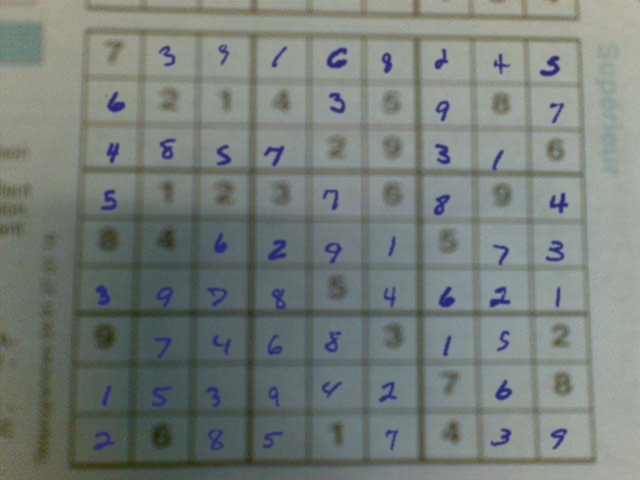 7 3 9 1 6 8 2 4 5
6 2 1 4 3 5 9 8 7
4 8 5 7 2 9 3 1 6
5 1 2 3 7 6 8 9 4
8 4 6 2 9 1 5 7 3
3 9 7 8 5 4 6 2 1
9 7 4 6 8 3 1 5 2
1 5 3 9 4 2 7 6 8
2 6 8 5 1 7 4 3 9
Supérieur